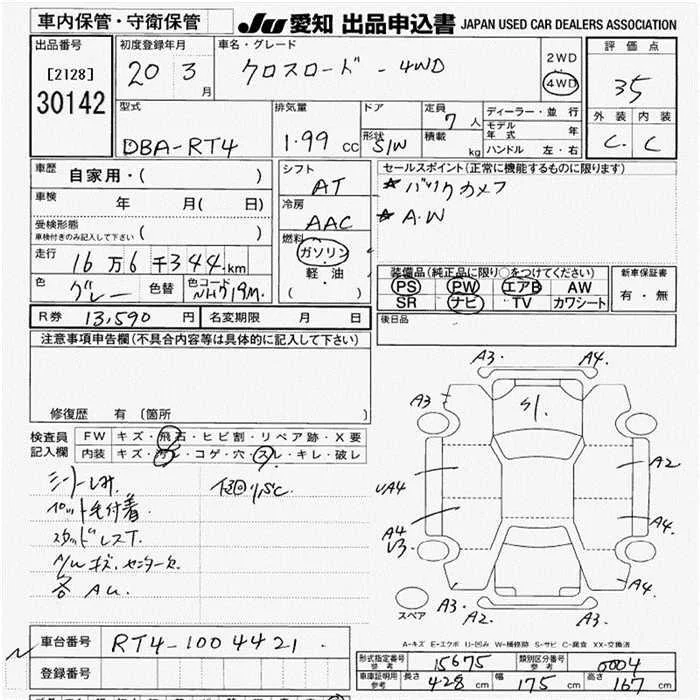 車内保管・守衛保管
JU 愛知 出品申込書 JAPAN USED CAR DEALERS ASSOCIATION
出品番号
[2128]
30142
初度登録年月
20 3月
車名・グレード
クロスロード - 4WD
2WD
4WD
評価点
35
外装 内装
C. C
型式
DBA-RT4
排気量
1.99 cc
ドア
形状 S/W
定員 7人
積載 kg
ディーラー・並行
モデル年式 年
ハンドル 左・右
車歴 自家用・( )
車検 年 月( 日)
受検形態
車検付きのみ記入して下さい ( )
走行 16万6千344km
色 グレー 色替 色コード NH719M.
シフト
AT
冷房
AAC
燃料
ガソリン
軽・油
( )
セールスポイント(正常に機能するものに限ります)
☆ バックカメラ
☆ A.W
装備品(純正品に限り○をつけてください)
PS PW エアB AW
SR ナビ TV カワシート
新車保証書
有・無
後日品
R券 13,590 円 名変期限 月 日
注意事項申告欄(不具合内容等は具体的に記入して下さい)
修復歴 有 〔箇所 〕
検査員記入欄
FW キズ・飛石・ヒビ割・リペア跡・X要
内装 キズ・汚レ・コゲ・穴・スレ・キレ・破レ
シートしみ.
ペット毛付着.
スタッドレスT.
各 AU.
A3. A4.
A3
S1.
A2
UA4
A4
A4.
A4.
A3.
A2.
A3.
スペア
A-キズ E-エクボ U-凹み W-補修跡 S-サビ C-腐食 XX-交換済
車台番号 RT4-1004421
登録番号
形式指定番号 参考 15675 類別区分番号 参考 0004
車庫証明用 参考 長さ 428 cm 幅 175 cm 高さ 167 cm